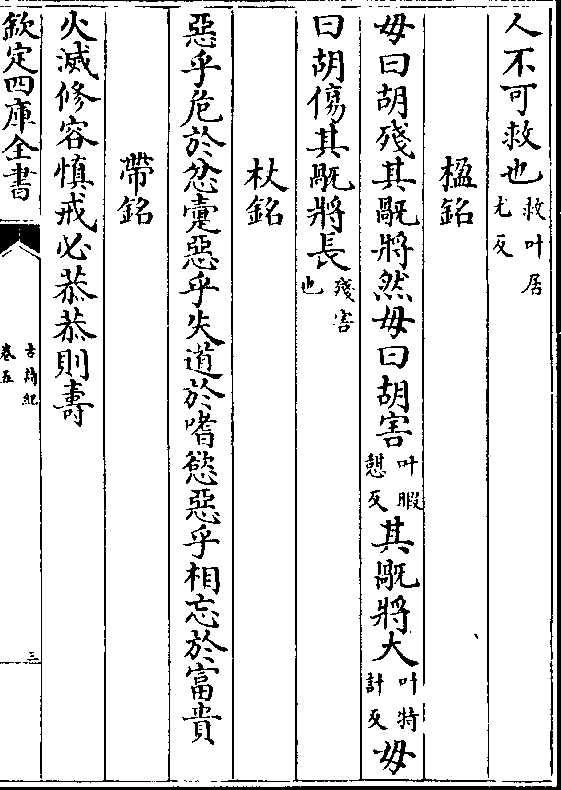 人不可救也救叶居尤反
楹銘
毋曰胡殘其𣤶將然毋曰胡害叶暇憇反其𣤶將大叶特計反毋
曰胡傷其𣤶將長殘害也
杖銘
惡乎危於忿疐惡乎失道於嗜慾惡乎相忘於富貴
帶銘
火滅修容慎戒必恭恭則壽
欽定四庫全書
古詩紀
卷五
三